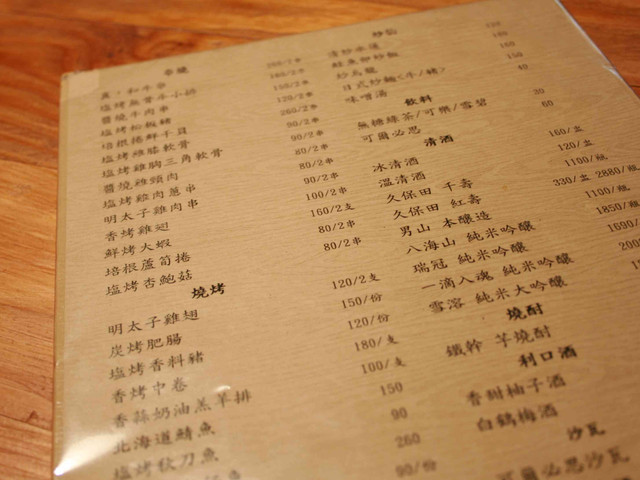 串燒
黑•和牛串
塩烤無骨牛小排 180/2串
醬燒牛肉串 150/2串
塩烤松板豬 120/2串
培根捲鮮干貝 260/2串
塩烤雞膝軟骨 90/2串
塩烤雞胸三角軟骨 90/2串
醬燒雞頸肉 80/2串
塩烤雞肉蔥串 80/2串
明太子雞肉串 90/2串
香烤雞翅 100/2串
鮮烤大蝦 160/2支
培根蘆筍捲 80/2串
塩烤杏鮑菇 80/2串
燒烤
明太子雞翅 120/2支
炭烤肥腸 150/份
塩烤香料豬 120/份
香烤中卷 180/支
香蒜奶油羔羊排 100/支
北海道鯖魚 150
塩烤秋刀魚 90
260
90/份
清炒水蓮 120
鮭魚卵炒飯 160
炒烏龍 160
日式炒麵<牛/豬> 150
味噌湯 40
飲料
無糖綠茶/可樂/雪碧 30
可爾必思 60
清酒
冰清酒 160/盅
溫清酒 120/盅
久保田 千壽 1100/瓶
久保田 紅壽 330/盅 2880/瓶
男山 本釀造 1100/瓶
八海山 純米吟釀 1850/瓶
瑞冠 純米吟釀 1690/
一滴入魂 純米吟釀
雪溶 純米大吟釀
燒酎
鐵幹 芋燒酎
利口酒
香甜柚子酒
白鶴梅酒
沙瓦
可爾必思沙瓦